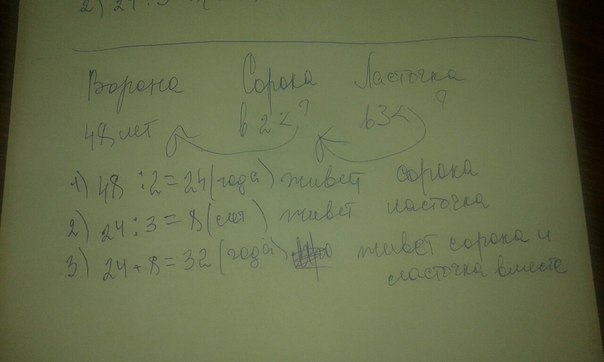 2) 24 : 3
Ворона Сорока Ласточка
48 лет в 2 < ? в 3 < ?
1) 48 : 2 = 24 (года) живёт сорока
2) 24 : 3 = 8 (лет) живёт ласточка
3) 24 + 8 = 32 (года) живёт сорока и
ласточка вместе